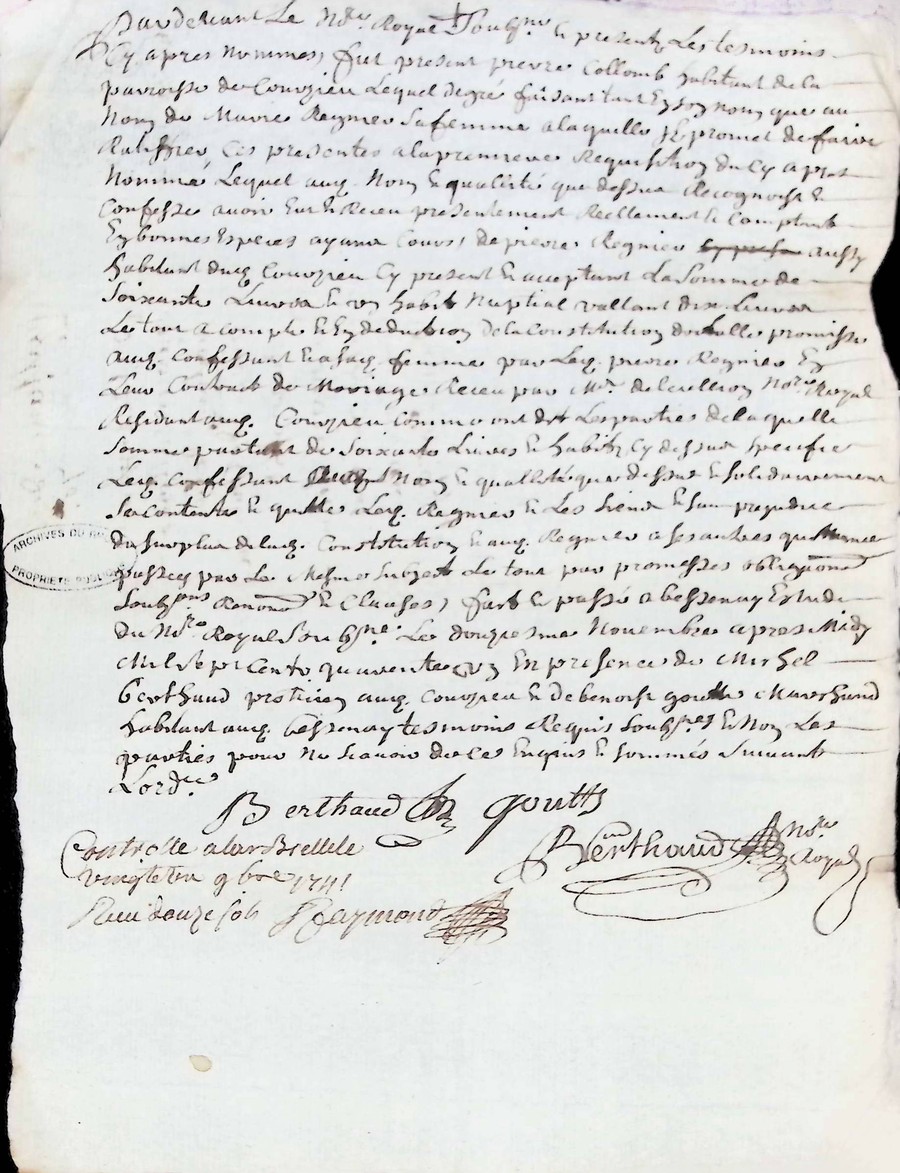 Pardevant Le No.re Royal Soubz.né & presentz Les tesmoins
Cy apres Nommes, fut present pierre Collomb habitant de la
parroisse de Couzieu Lequel de gré faisant tant En son Nom que au
Nom de Marie Regnier Sa femme a laquelle Il promet de faire
Ratiffier Ces presentes a la premiere Requisition du Cy apres
Nommé Lequel auq. Nom & quallité que dessus Recognoist &
Confesse avoir Eu & Receu presentement Reellement & Comptant
En bonnes Especes ayant Cours, de pierre Regnier aussy
habitant dudq. Couzieu Cy present & acceptant La Somme de
Soixante Livres & un habit Nuptial vallant dix Livres
Le tout a compte & En deduction de la Constitution promise
auq. Confessant & a saq. femme par Leq. pierre Regnier En
Leur Contract de Mariage Receu par Me. No.re Royal
Residant auq. Couzieu Comme ont dit Les parties de laquelle
Somme partant de Soixante Livres & habitz Cy dessus Speciffié
Leq. Confessant Nom & quallité que dessus & Solidairement
Se contente & quitte Leq. Regnier & Les Siens & San prejudice
du Surplus de laq. Constitution & auq. Regnier a ses autres quittance
passées par Le Mesme Subject Le tout par promesses obligaons
Soubz.ons Renons & Clauses, fait & passé a bessenay Estude
du No.re Royal Soubz.né Le douziesme Novembre apres Midy
Mil Sept Cents quarente un En presence de Michel
berthaud praticien auq. Couzieu & de benoist goutte Marchand
habitant auq. bessenay tesmoins Requis Soubz.nes & Non Les
parties pour Ne Scavoir de ce Enquis & Sommés Suivant
Lord.ce
Berthaud goutte
Berthaud No.re Royal
Controllé a larbrelle le
vingt et un 9bre 1741
Receu douze sols Raymond
ARCHIVES DU
PROPRIETE PUBLIQUE